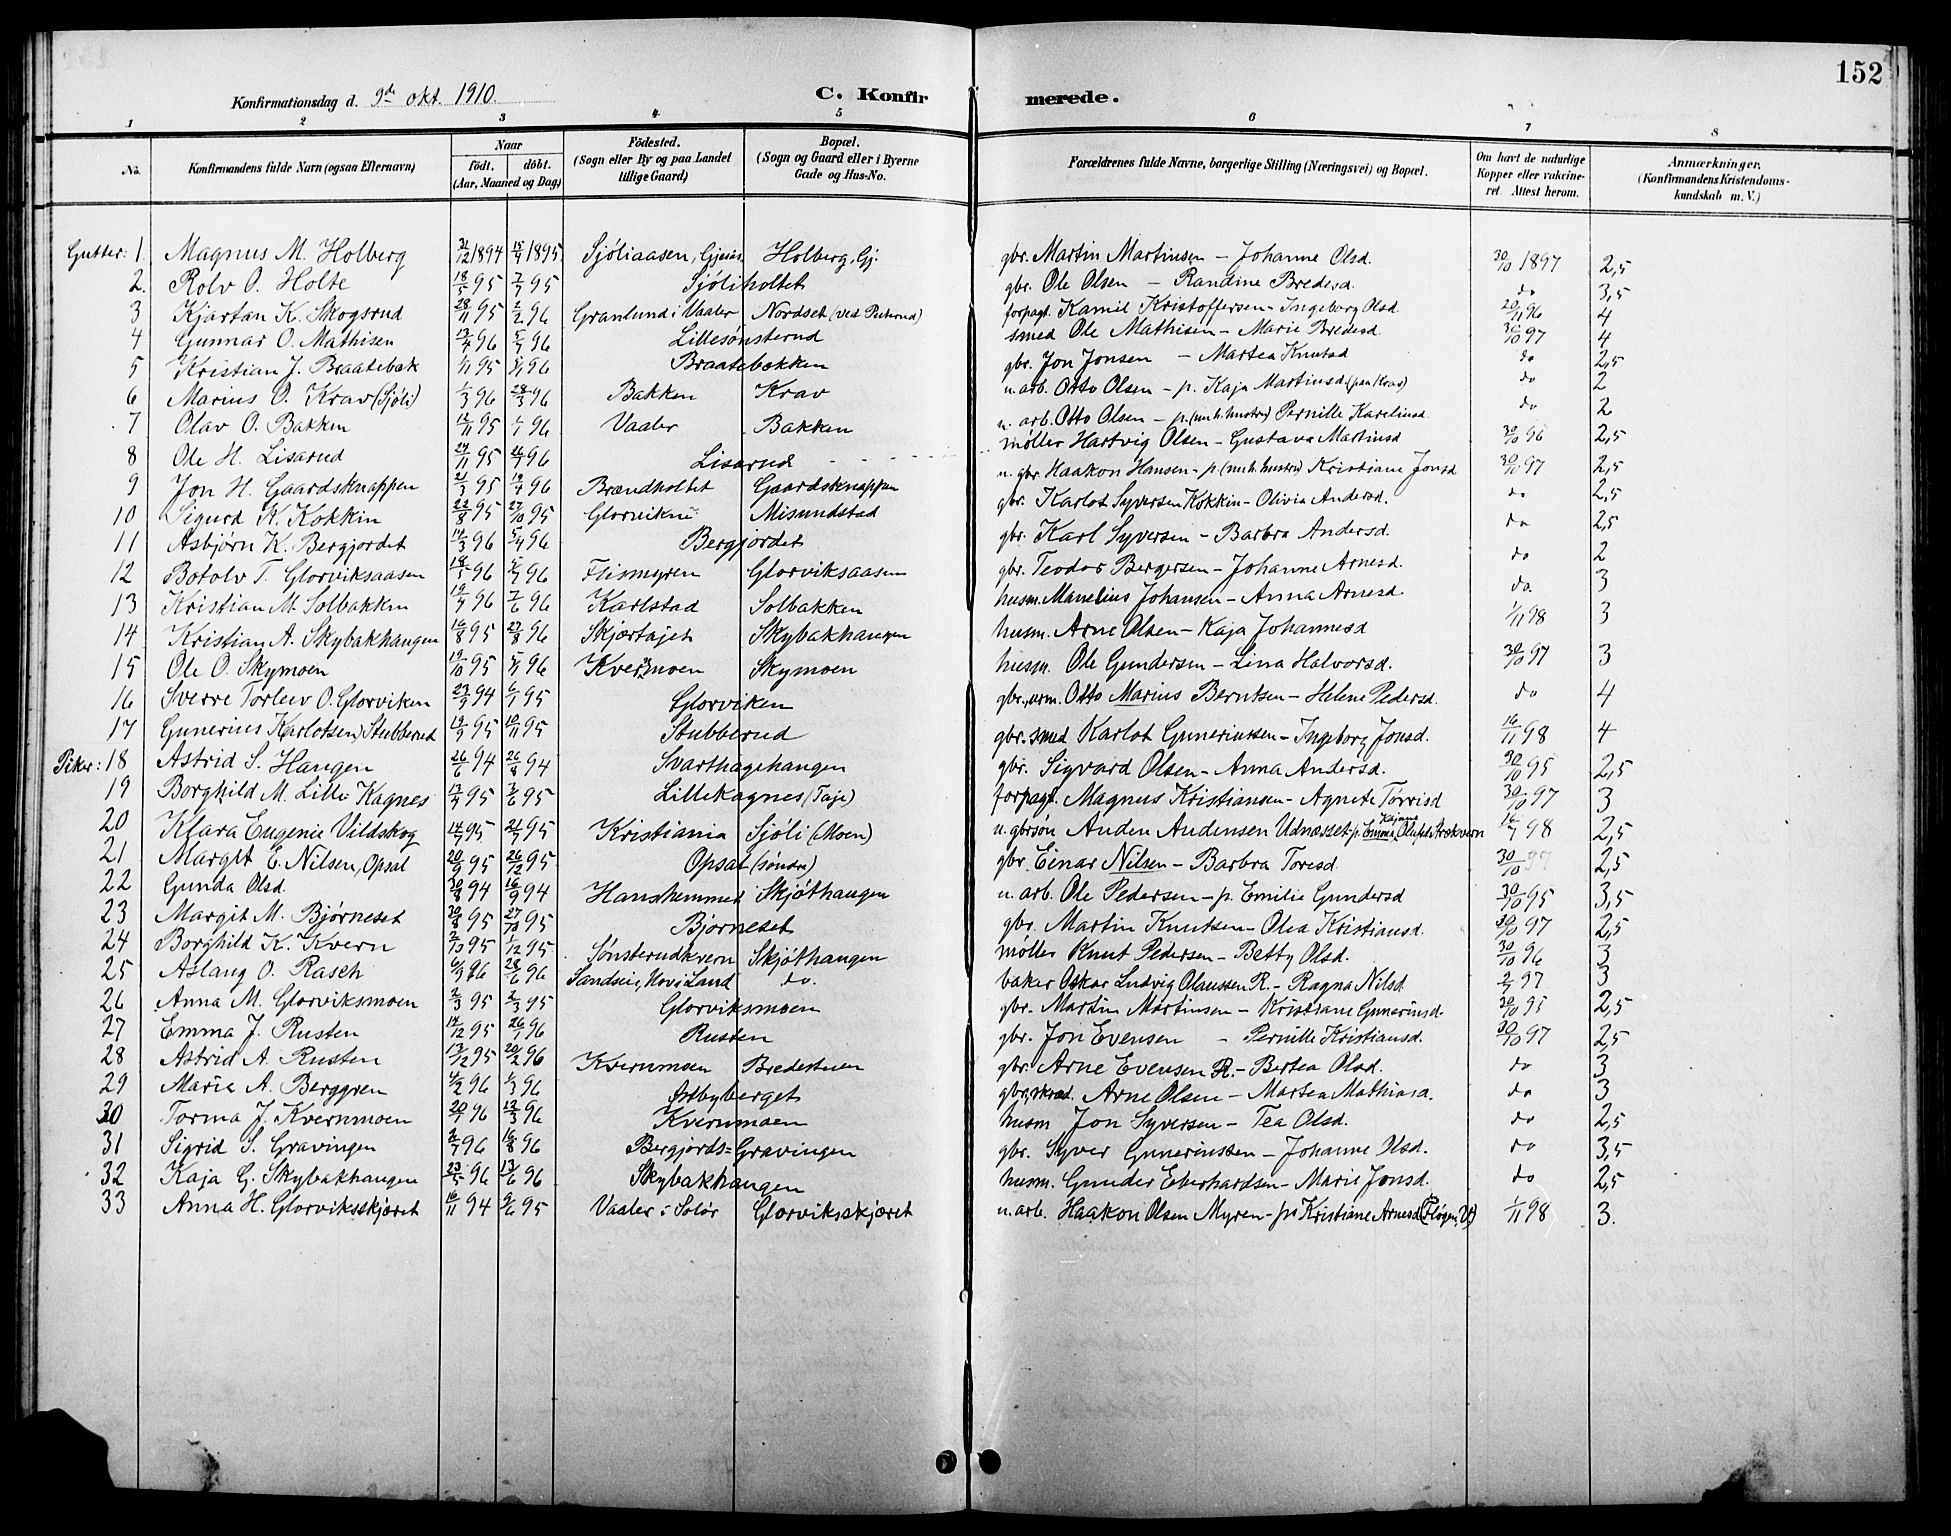 152
Konfirmationsdag d. 9de okt. 1910. C. Konfirmerede.
1 2 3 4 5 6 7 8
No. Konfirmandens fulde Navn (ogsaa Efternavn) Naar födt. döbt. (Aar, Maaned og Dag) Födested. (Sogn eller By og paa Landet tillige Gaard) Bopæl. (Sogn og Gaard eller i Byerne Gade og Hus-No. Forældrenes fulde Navne, borgerlige Stilling (Næringsvei) og Bopæl. Om havt de naturlige Kopper eller vakcineret. Attest herom. Anmærkninger. (Konfirmandens Kristendomskundskab m. V.)
Gutter: 1. Magnus M. Holberg 21/12 1894 15/4 1895 Sjøliaasen, Holberg, Gj. gbr. Martin Martinsen – Johanne Olsd. 30/10 1897 2,5
2. Rolv O. Holte 95 95 Sjøliholtet gbr. Ole Olsen – Randine Bredesd. do 3,5
3 Kjartan K. Skogsrud 28/11 95 2/2 96 Granlund i Vaaler Nordset (ved Peterud) forpagt. Kamil Kristoffersen – Ingeborg Olsd 20/11 96 4
4 Gunnar O. Mathisen 13/4 96 96 Lillesønsterud smed Ole Mathisen – Marie Bredesd 30/10 97 4
5 Kristian J. Braatebak 95 96 Braatebakken gbr. Jon Jonsen – Martea Knutsd do 2,5
6 Marius O. Krav (Sjøli) 1/3 96 28/3 96 Bakken Krav u. arb. Otto Olsen – p. Kaja Martinsd (paa Krav) do 2
7 Olav O. Bakken 12/11 95 1/1 96 Vaaler Bakken u. arb. Otto Olsen – p. (nu h. hustru) Pernille Karelinsd do 2
8 Ole H. Lisarud 24/11 95 96 Lisarud møller Hartvig Olsen – Gustava Martinsd 30/10 96 2,5
9 Jon H. Gaardsknappen 21/3 95 96 Brændholtet Gaardsknappen u. gbr. Haakon Hansen – p (nu h. hustru) Kristiane Jonsd 30/10 97 2,5
10 Sigurd K. Kokkin 22/8 95 27/10 95 Glorvikne Misundstad gbr. Karlot Syversen Kokkin – Olivia Andersd. do 2,5
11 Asbjørn K. Bergjordet 14/3 96 5/4 96 Bergjordet gbr. Karl Syversen – Barbra Andersd. do 2,5
12 Botolv T. Glorviksaasen 96 96 Flismyren Glorviksaasen gbr. Teodor Bergersen – Johanne Arnesd. do 2
13 Kristian M. Solbakken 96 7/6 96 Karlstad Solbakken husm. Manelius Johansen – Anna Arnesd do. 3
14 Kristian A. Skybakhangen 16/8 95 96 Skjærtajet Skybakhangen husm. Arne Olsen – Kaja Johannesd 1/11 98 3
15 Ole O. Skymoen 19/10 95 96 Kvernmoen Skymoen husm. Ole Gundersen – Lina Halvorsd. 30/10 97 3
16 Sverre Torleiv O. Glorviken 94 95 Glorviken gbr., urm. Otto Marius Berntsen – Helene Pedersd. do 4
17 Gunerius Karlotsen Stubberud 19/9 95 10/11 95 Stubberud gbr. smed Karlot Gunneriussen – Ingeborg Jonsd. 16/11 98 4
Piker: 18 Astrid S. Hangen 26/6 94 26/8 94 Svarthagehangen gbr. Sigvard Olsen – Anna Andersd. 30/10 95 2,5
19 Borghild M. Lille Kagnes 13/4 95 3/6 95 Lillekagnes (Taje) forpagt. Magnus Kristiansen – Agnete Tørrisd 30/10 97 3
20 Klara Eugenie Vildskog 95 21/7 95 Kristiania Sjøli (Moen) u. gbrsøn Anden Andensen Udnæsset p. Emma Kajana Olufsd. 98 2,5
21 Margit E. Nilsen, Opsal 20/9 95 26/12 95 Opsal (søndre) gbr. Einar Nilsen – Barbra Toresd. 30/10 97 2,5
22 Gunda Olsd. 30/8 94 16/9 94 Hanshemmet Skjøthangen u. arb. Ole Pedersen – p. Emilie Gundersd 30/10 95 3,5
23 Margit M. Bjørneset 30/8 95 27/10 95 Bjørneset gbr. Martin Knutsen – Olea Kristiansd. 30/10 97 2,5
24 Borghild K. Kvern 2/10 95 1/12 95 Sønsterudkvern Skjøthangen møller Knut Pedersen – Betty Olsd. 30/10 96 3
25 Aslaug O. Rasch 96 28/6 96 Sandsei, Hov i Land do. baker Oskar Ludvig Olaussen R. – Ragna Nilsd 97 3
26 Anna M. Glorviksmoen 2/3 95 2/3 95 Glorviksmoen gbr. Martin Martinsen – Kristiane Gunneriusd 30/10 95 2,5
27 Emma J. Rusten 14/12 95 26/1 96 Rusten gbr. Jon Evensen – Pernille Kristiansd. 30/10 97 2,5
28 Astrid A. Rusten 13/12 95 20/2 96 Kvernmoen Bredestuen gbr. Arne Evensen R. – Bertea Olsd. do 3
29 Marie A. Berggren 4/2 96 1/3 96 Østbyberget gbr., skræd. Arne Olsen – Martea Mathiasd. do 3
30 Torma J. Kvernmoen 96 96 Kvernmoen husm Jon Syversen – Tea Olsd. do 2,5
31 Sigrid S. Gravingen 96 16/8 96 Bergjords=Gravingen gbr. Syver Gunneriussen – Johanne Olsd. do 3,5
32 Kaja G. Skybakhangen 23/5 96 13/6 96 Skybakhangen husm. Gunder Eberhardsen – Marie Jonsd. do 2,5
33 Anna H. Glorviksskjæret 16/11 94 9/6 95 Vaaler i Solør Glorviksskjæret u. arb. Haakon Olsen Myren – p. Kristiane Arnesd 1/11 98 3.